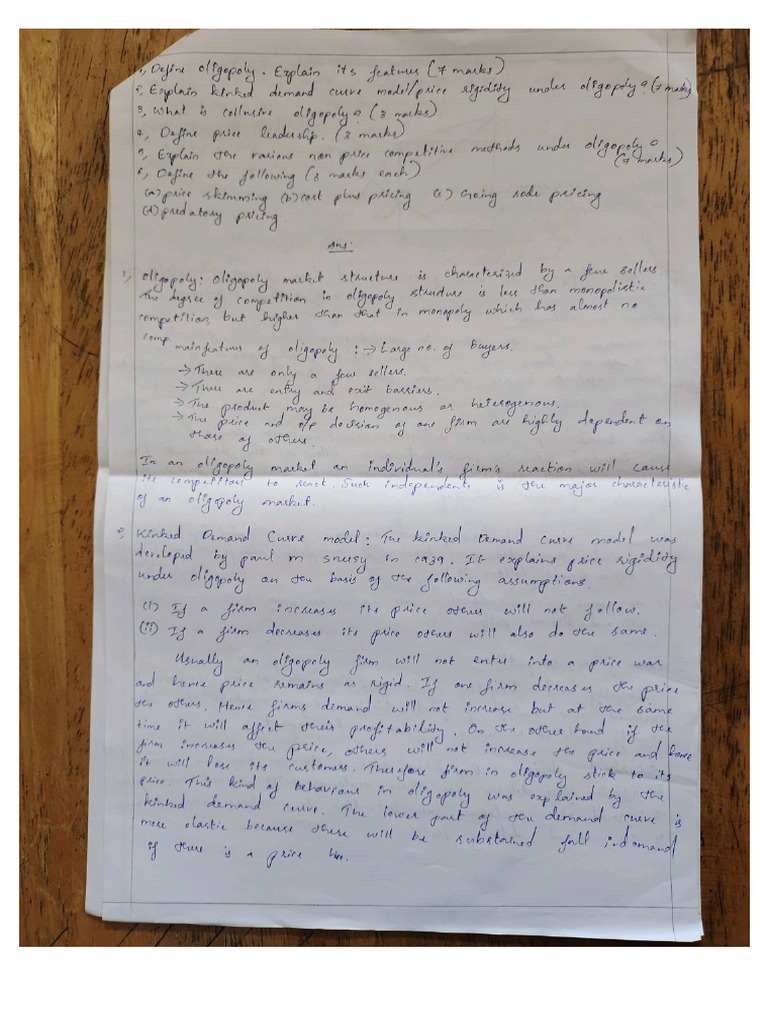 1, Define oligopoly. Explain its features (7 marks)
2, Explain kinked demand curve model/price rigidity under oligopoly? (7 marks)
3, What is collusive oligopoly? (3 marks)
4, Define price leadership. (3 marks)
5, Explain the various non price competitive methods under oligopoly? (7 marks)
6, Define the following (3 marks each)
(a) price skimming (b) cost plus pricing (c) Going rode pricing
(d) predatory pricing.
Ans:
1, Oligopoly: Oligopoly market structure is characterized by a few sellers.
The degree of competition in oligopoly structure is less than monopolistic
competition, but higher than that in monopoly which has almost no
comp
main features of oligopoly : → Large no. of Buyers.
→ There are only a few sellers.
→ There are entry and exit barriers.
→ The product may be homogenous or heterogenous.
→ The price and o/p decision of one firm are highly dependent on
those of others.
In an oligopoly market an individual's firm's reaction will cause
its competitors to react. Such independents is the major characteristic
of an oligopoly market.
2, Kinked Demand Curve model: The kinked Demand Curve model was
developed by paul m sweesy in 1939. It explains price rigidity
under oligopoly on the basis of the following assumptions.
(i) If a firm increases its price others will not follow.
(ii) If a firm decreases its price others will also do the same.
Usually an oligopoly firm will not enter into a price war
and hence price remains as rigid. If one firm decreases the price
the others. Hence firms demand will not increase but at the same
time it will affect their profitability. On the other hand if the
firm increases the price, others will not increase the price and hence
it will lose its customers. Therefore firm in oligopoly stick to its
price. This kind of behaviour in oligopoly was explained by the
kinked demand curve. The lower part of the demand curve is
more elastic because there will be substained fall indemand
if there is a price